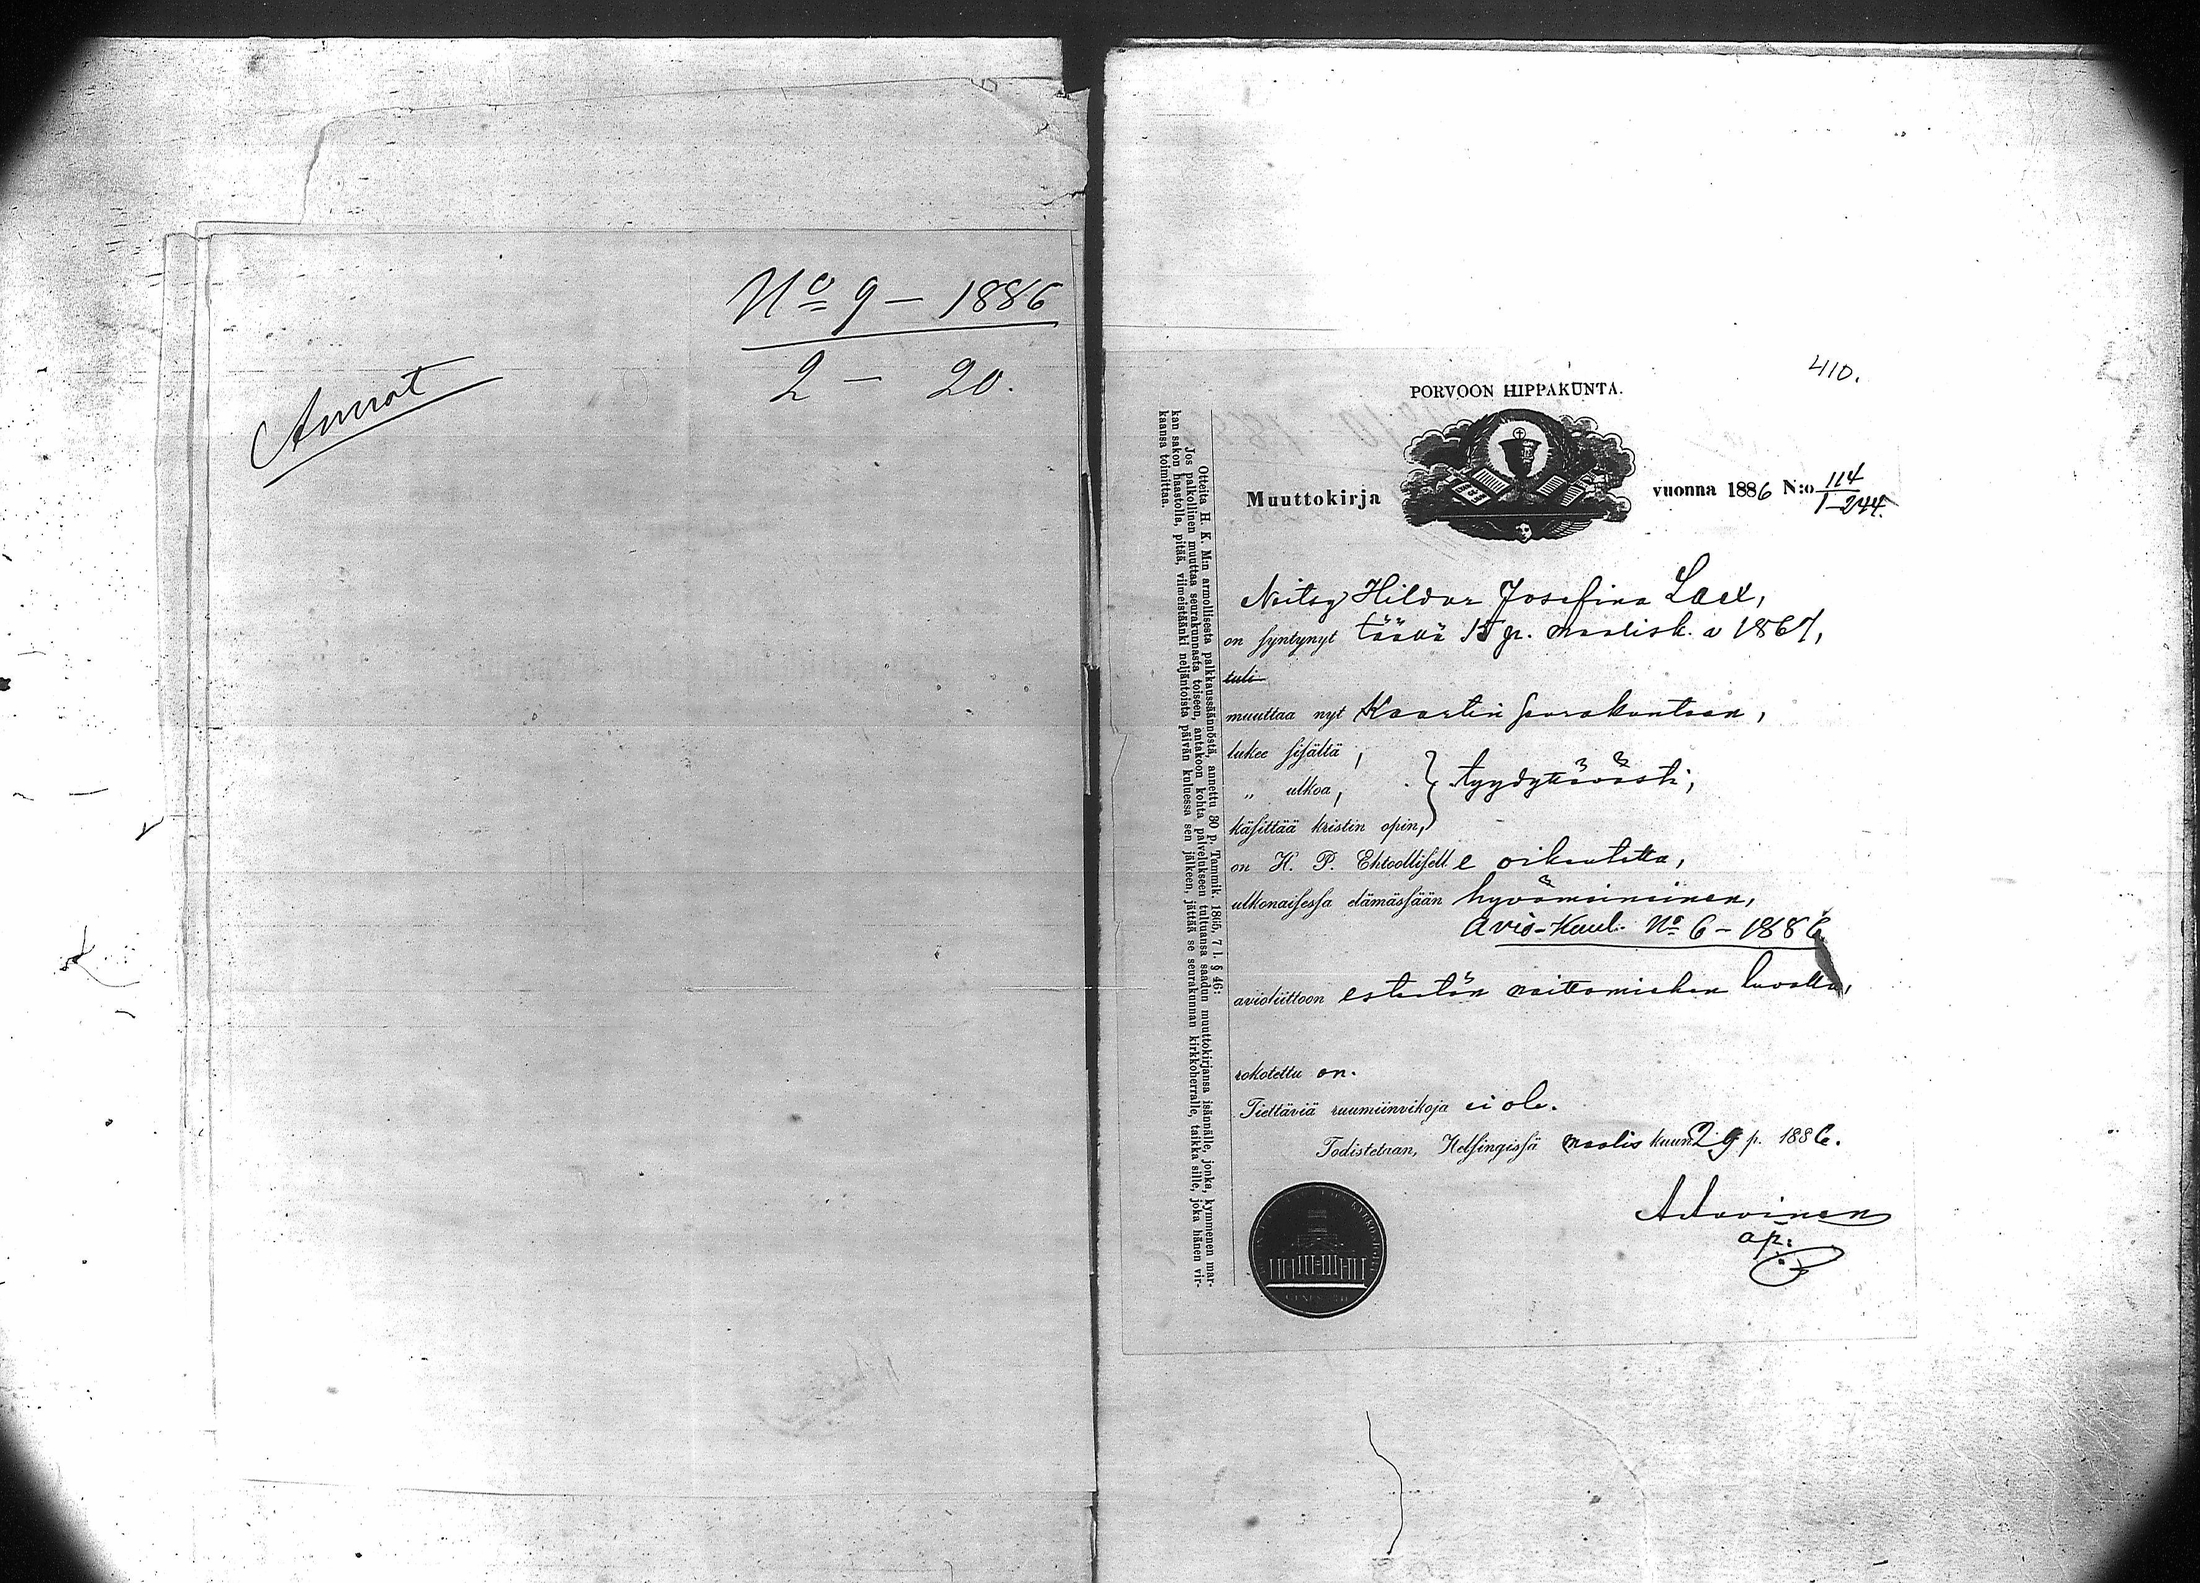 No 9 – 1886
2 – 20.
410.
PORVOON HIPPAKUNTA.
Muuttokirja vuonna 1886 N:o 114
1–244.
Neitsy Hilda Josefina
on syntynyt täällä 15 p. maalisk. v 1867,
tuli
muuttaa nyt Kaartin seurakuntaan,
lukee sisältä,
„ ulkoa, } tyydyttävästi,
käsittää kristin opin,
on H. P. Ehtoollisell e oikeutettu,
ulkonaisessa elämässään hyvämaineinen,
Avio-Kuul. No 6 – 1886
avioliittoon esteetön naittomiehen luvalla,
rokotettu on.
Tiettäviä ruumiinvikoja ei ole.
Todistetaan, Helsingissä maalis kuun 29 p. 1886.
ap.
Otteita H. K. M:n armollisesta palkkaussäännöstä, annettu 30 p. Tammik. 1865, 7 l. § 46:
Jos palkollinen muuttaa seurakunnasta toiseen, antakoon kohta palvelukseen tultuansa saadun muuttokirjansa isännälle, jonka, kymmenen mar-
kan sakon haastolla, pitää, viimeistäänki neljäntoista päivän kuluessa sen jälkeen, jättää se seurakunnan kirkkoherralle, taikka sille, joka hänen vir-
kaansa toimittaa.